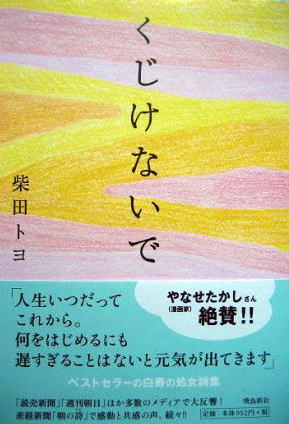 くじけないで
柴田トヨ
やなせたかしさん
(漫画家)
絶賛!!
「人生いつだって
これから。
何をはじめるにも
遅すぎることはないと元気が出てきます」
ベストセラーの白寿の処女詩集
「読売新聞」「週刊朝日」ほか多数のメディアで大反響!
産経新聞「朝の詩」で感動と共感の声、続々!!
飛鳥新社
定価:本体952円+税